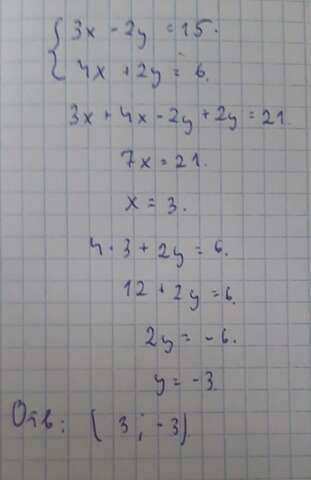 { 3x - 2y = 15.
4x + 2y = 6.
3x + 4x - 2y + 2y = 21.
7x = 21.
x = 3.
4 · 3 + 2y = 6.
12 + 2y = 6.
2y = -6.
y = -3.
Отв: (3; -3).